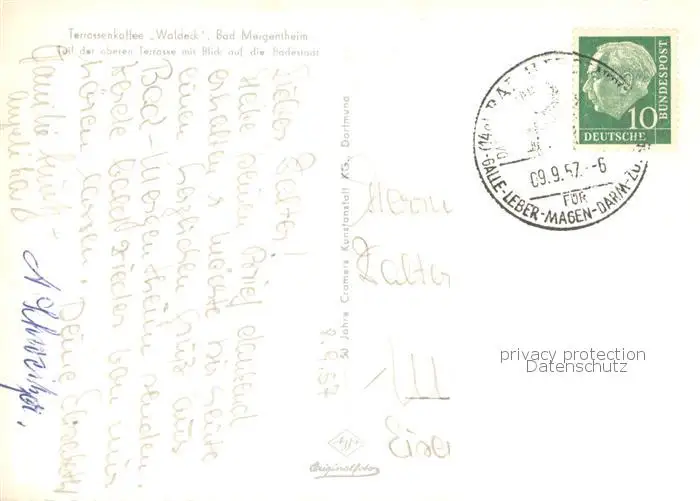 Terrassenkaffee „Waldeck“, Bad Mergentheim
Teil der oberen Terrasse mit Blick auf die Badestadt
Lieber Walter!
Habe deinen Brief dankend
erhalten & möchte dir heute
einen herzlichen Gruß aus
Bad-Mergentheim senden.
Werde bald wieder von mir
hören lassen. Deine Elisabeth
Familie
8.9.57
50 Jahre Cramers Kunstanstalt KG., Dortmund
Originalfoto
Herrn
Walter
DEUTSCHE
BUNDESPOST
10
(14a) BAD
09.9.57.-6
FÜR
GALLE-LEBER-MAGEN-DARM-ZU
privacy protection
Datenschutz